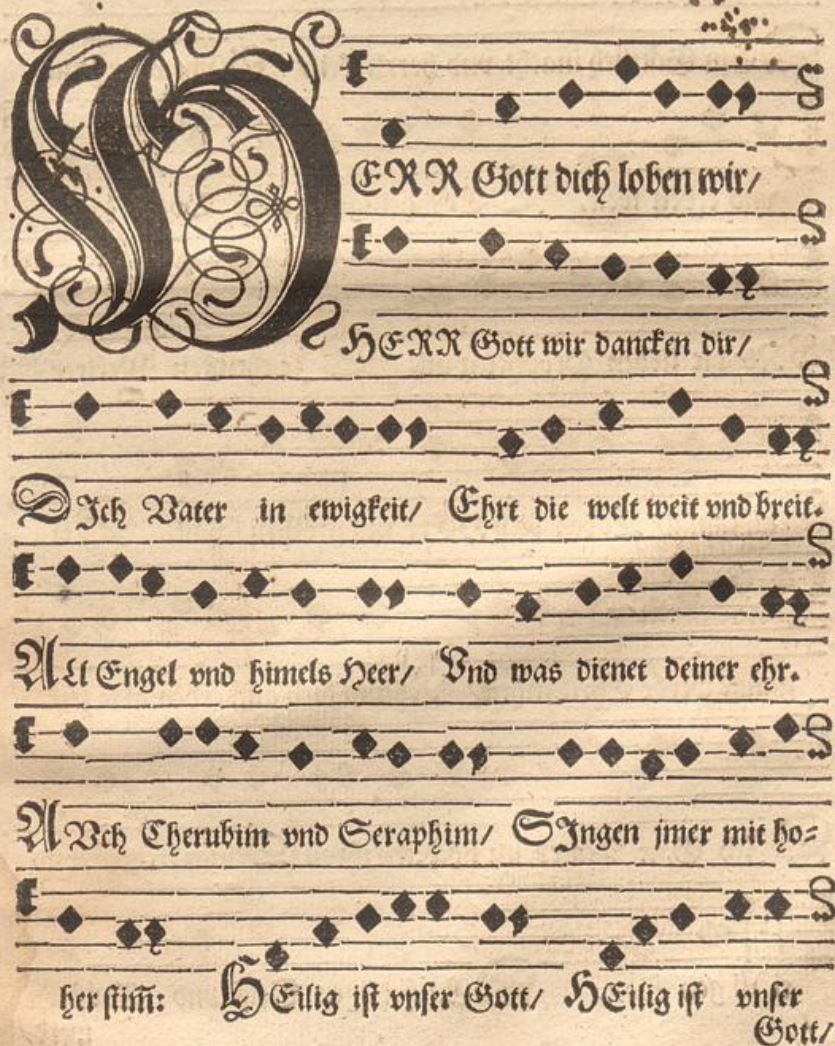 HERR Gott dich loben wir/
HERR Gott wir dancken dir/
DJch Vater in ewigkeit/ Ehrt die welt weit vnd breit.
All Engel vnd himels Heer/ Vnd was dienet deiner ehr.
AVch Cherubim vnd Seraphim/ SJngen jmer mit ho=
her stim̄: HEilig ist vnser Gott/ HEilig ist vnser
Gott/